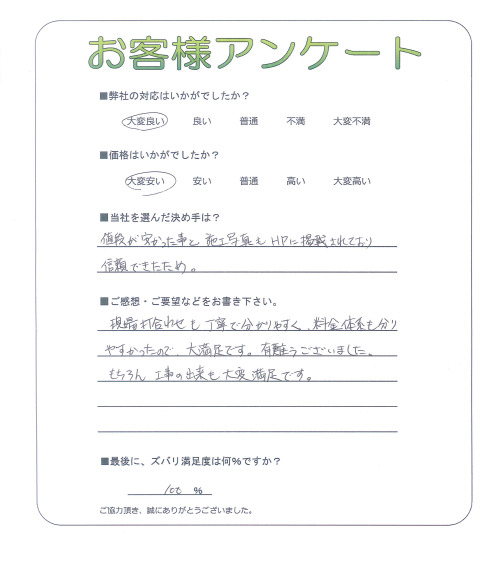 お客様アンケート
■弊社の対応はいかがでしたか？
大変良い 良い 普通 不満 大変不満
■価格はいかがでしたか？
大変安い 安い 普通 高い 大変高い
■当社を選んだ決め手は？
値段が安かった事と施工写真もHPに掲載されており
信頼できたため。
■ご感想・ご要望などをお書き下さい。
現場打合わせも丁寧で分かりやすく、料金体系も分り
やすかったので、大満足です。有難うございました。
もちろん工事の出来も大変満足です。
■最後に、ズバリ満足度は何%ですか？
100 %
ご協力頂き、誠にありがとうございました。